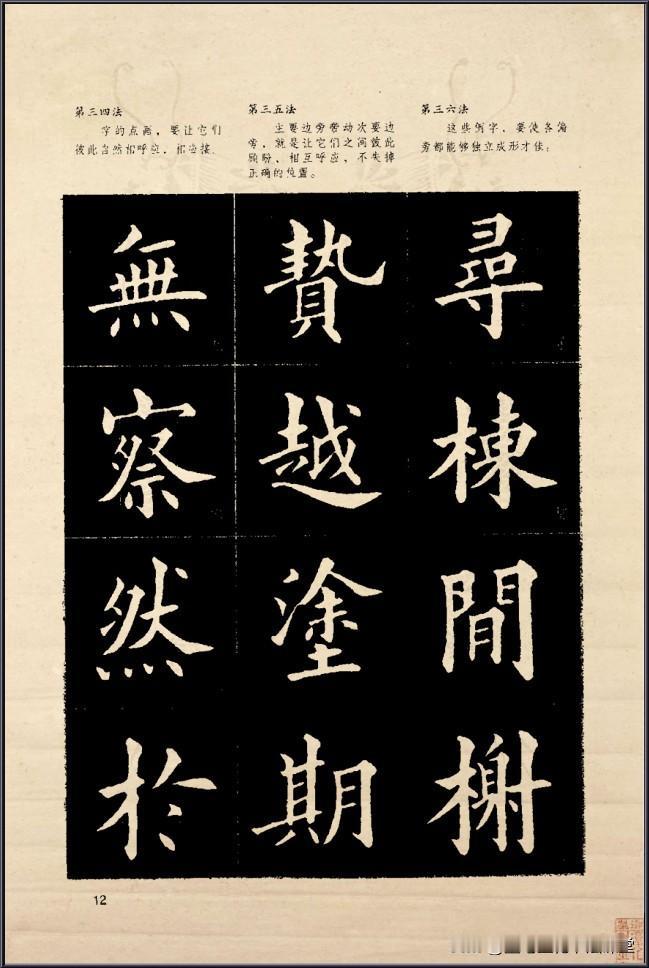 第三四法
字的点画，要让它们
彼此自然相呼应，相迎接．
第三五法
主要边旁带动次要边
旁，就是让它们之间彼此
顾盼、相互呼应，不失掉
正确的位置。
第三六法
这些例字，要使各偏
旁都能够独立成形才佳；
無 贄 尋
察 越 棟
然 塗 間
於 期 榭
12